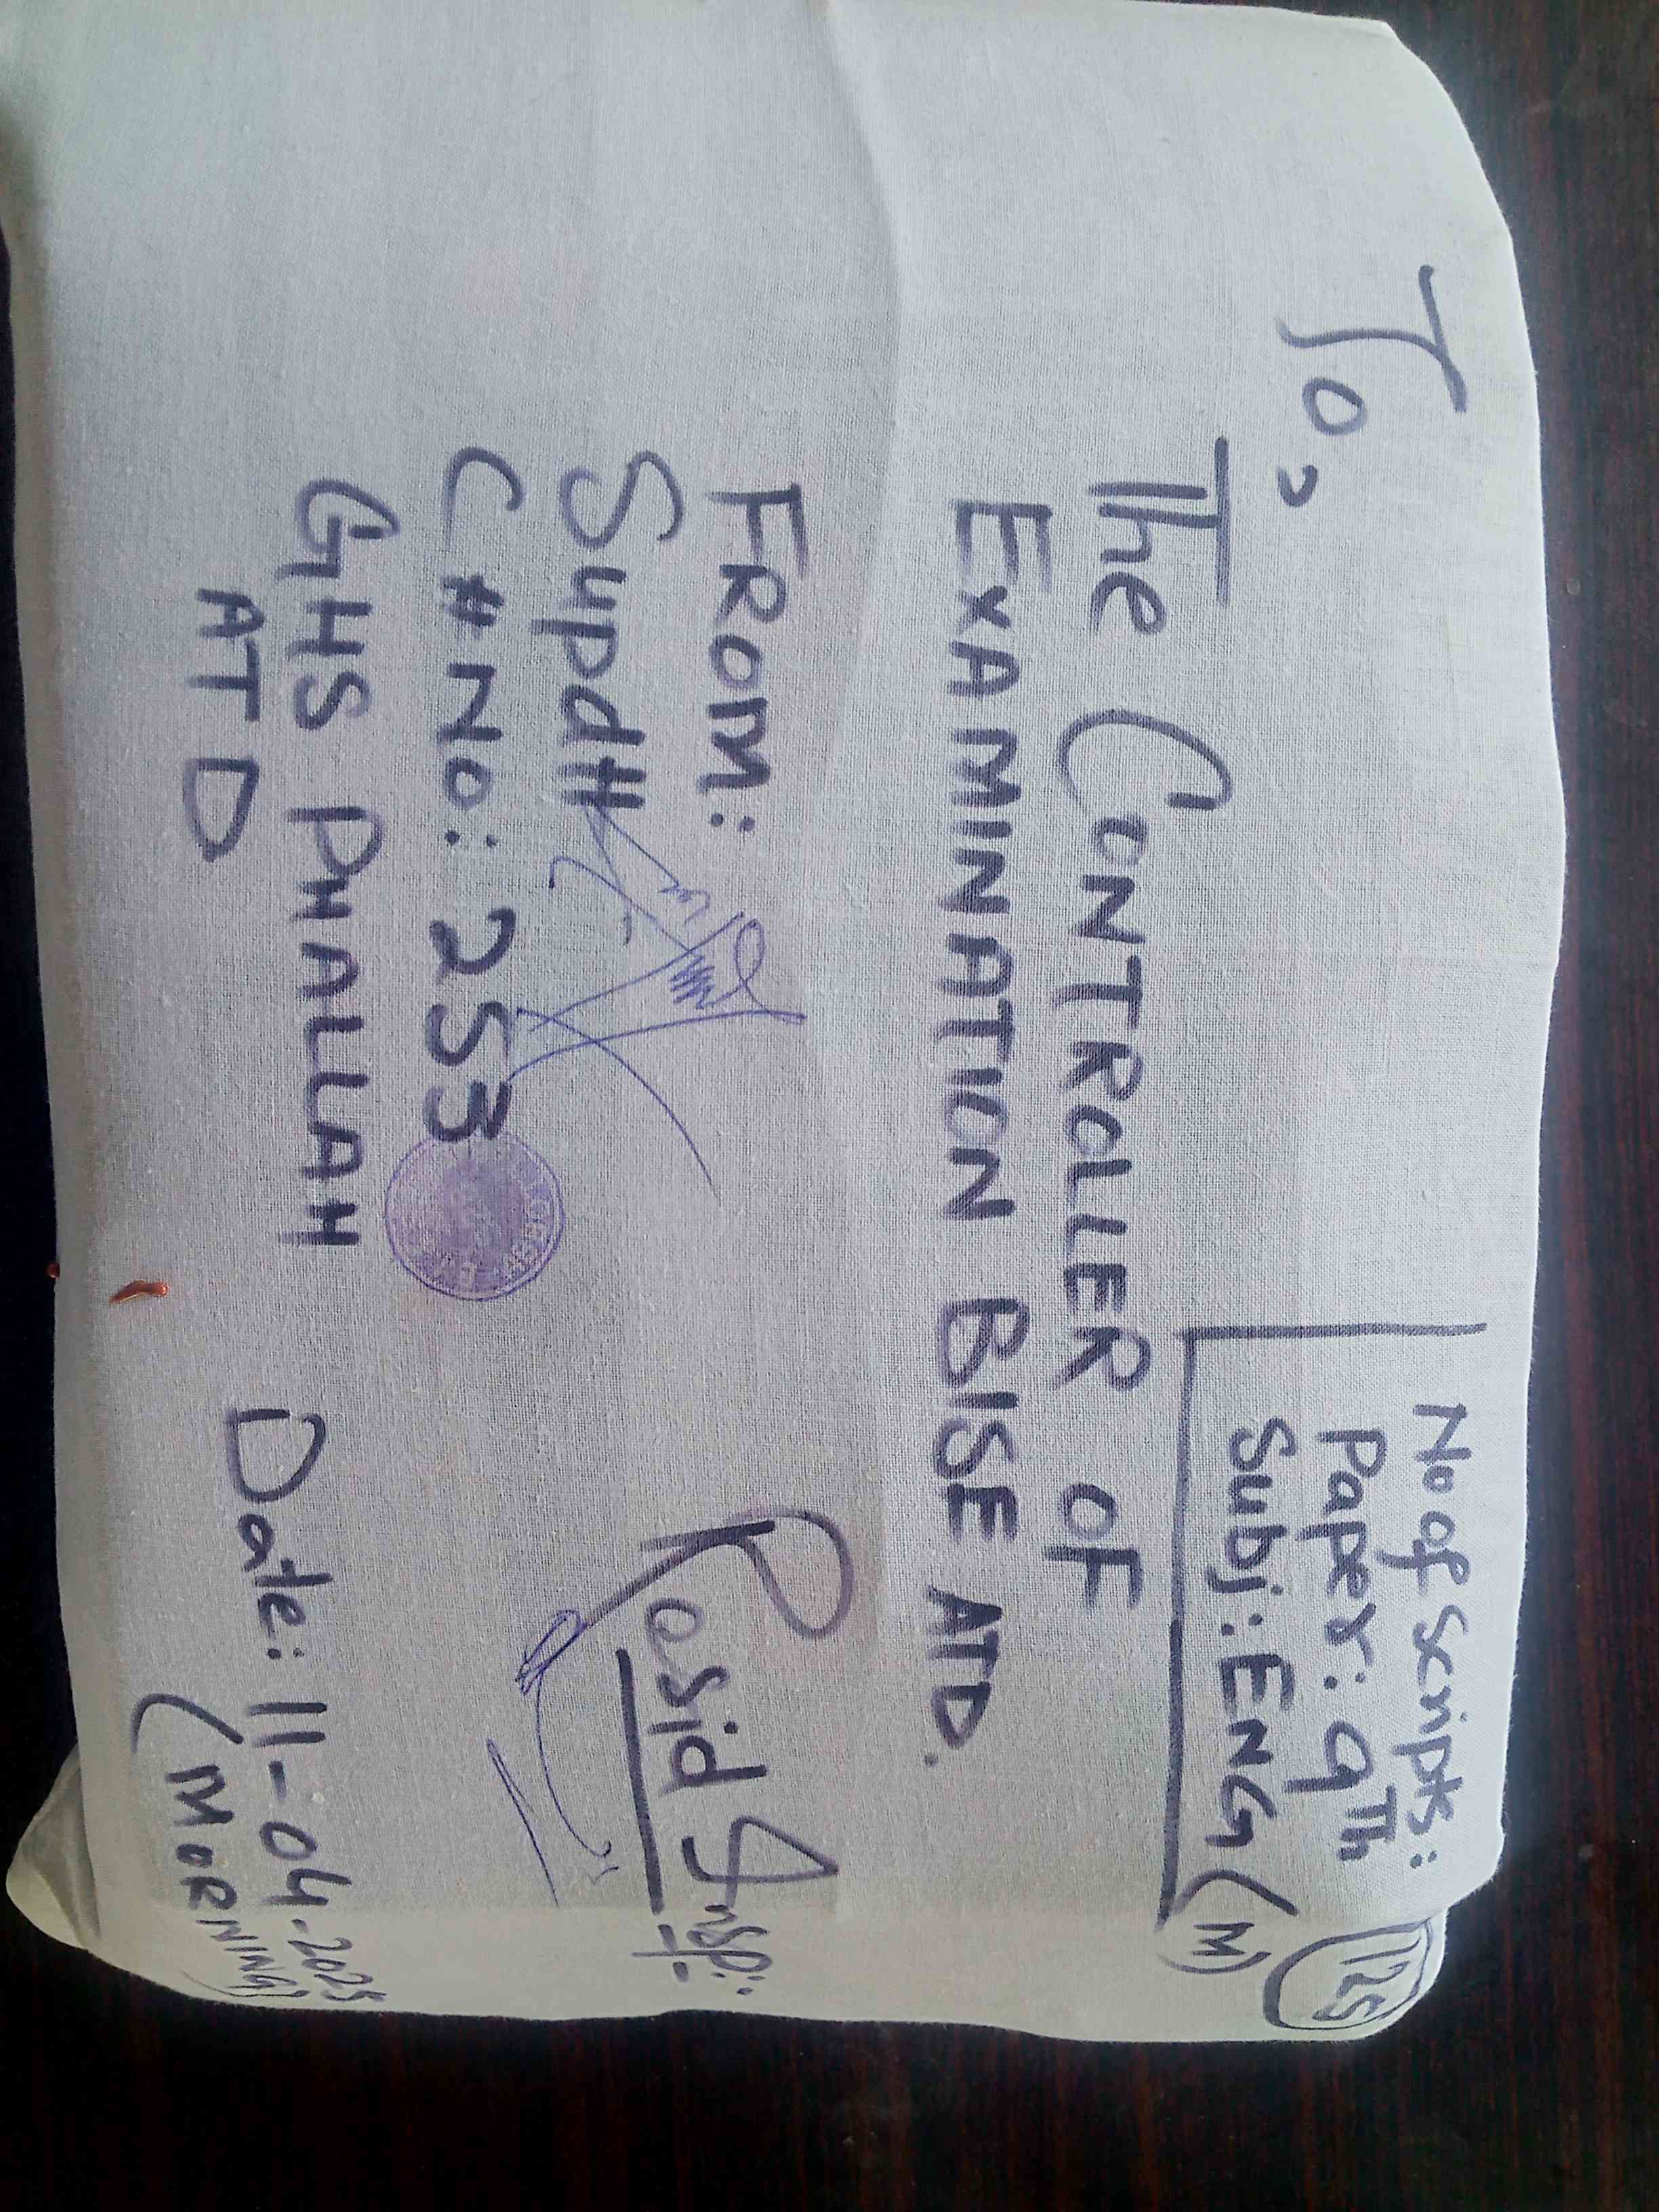 To,
No of Scripts: 125
Paper: 9Th
Subj: ENG (M)
The CONTROLLER OF
EXAMINATION BISE ATD.
FROM:
Supdtt
C # No: 253
GHS PHALLAH
ATD
Rasid Insp:
Date: 11-04-2025
(MORNING)